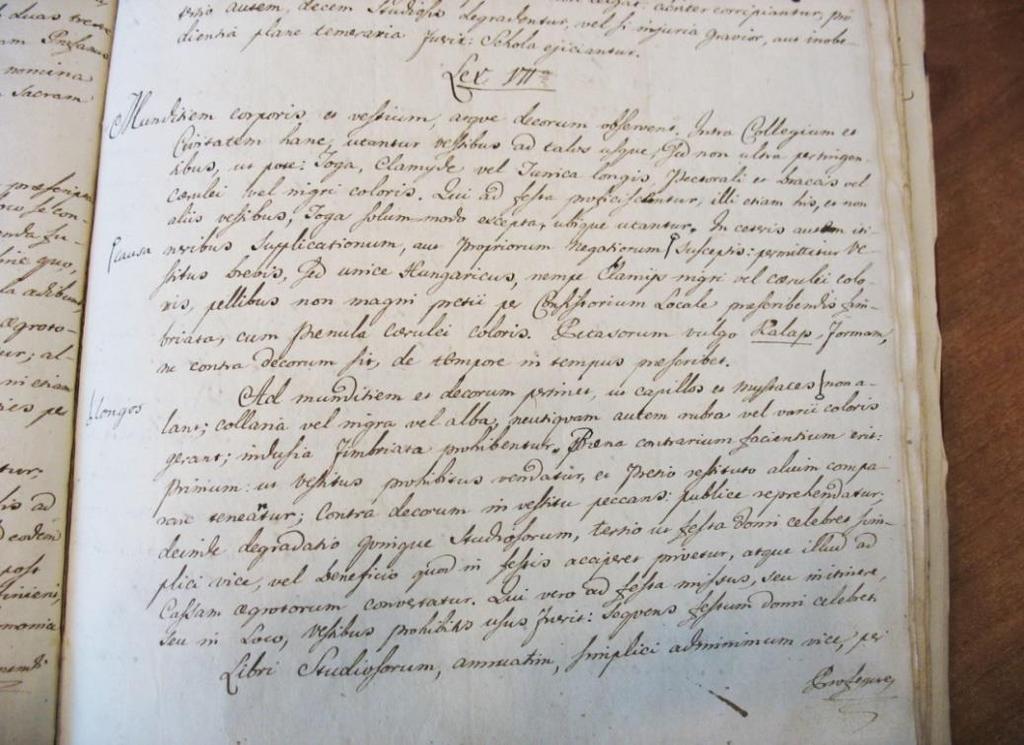 duas tres
tersio autem, decem Studiosis degradentur, vel si injuria gravior, aut inobe-
dientia plane temeraria fuerit: Schola ejiciantur.
Lex VII
nomina
Sacram
Munditiem corporis et vestium, atque decorum observent. Intra Collegium et
Civitatem hanc, utantur vestibus ad talos usque, sed non ultra pertingen-
tibus, ut pote: Toga, Clamyde vel Tunica longis, Pectorali et bracis vel
coerulei vel nigri coloris. Qui ad festa proficiscuntur, illi etiam his, et non
aliis vestibus, Toga solum modo excepta, ubique utantur. In ceteris autem iti-
causa
neribus Supplicationum, aut propriorum negotiorum susceptis: permittitur ve-
stitus brevis, sed unice Hungaricus, nempe Clamys nigri vel coerulei colo-
ris, pellibus non magni pretii per Consistorium Locale praescribendis fim-
briata, cum Penula coerulei coloris. Petasorum vulgo Kalap, formam,
ne contra decorum sit, de tempore in tempus praescribet.
Ad munditiem et decorum pertinet, ut capillos et mystaces non a-
longos
lant; collaria vel nigra vel alba, neutiquam autem rubra vel varii coloris
gerant; indusia fimbriata prohibentur. Poena contrarium facientium erit:
primum: ut vestitus prohibitus vendatur, et pretio restituto alium compa-
rare teneatur; Contra decorum in vestitu peccans: publice reprehendatur;
deinde degradatio quinque Studiosorum, tertio ut festa domi celebret sim-
plici vice, vel beneficio quod in festis acciperet privetur, atque illud ad
Cassam aegrotorum convertatur. Qui vero ad festa missus, seu in itinere,
seu in Loco, vestibus prohibitis usus fuerit: sequens festum domi celebret.
Libri Studiosorum, annuatim, simplici adminimum vice, per